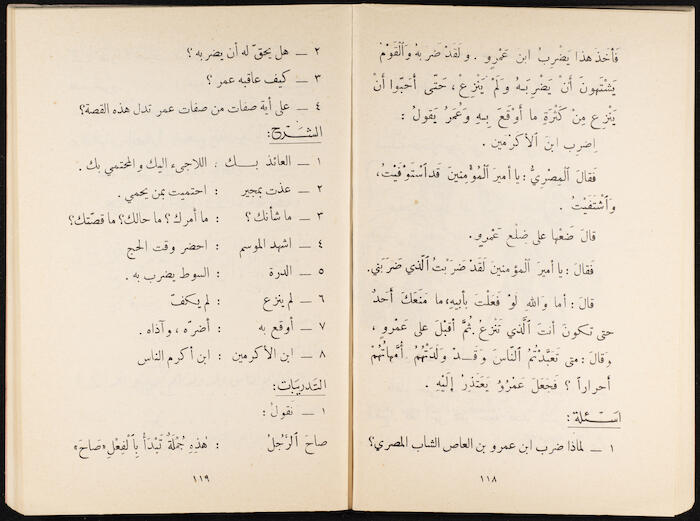 فَأَخَذَ هذا يَضْرِبُ ابن عَمْرٍو . وَلَقَدْ ضربهُ وَٱلْقَوْمُ
يَشْتَهونَ أَنْ يَضْرِبَهُ وَلَمْ يَنْزِعْ ، حَتّى أَحَبّوا أَنْ
يَنْزِع مِنْ كَثْرَةِ ما أَوْقَعَ بِهِ وَعُمَرُ يَقولُ :
اِضرِب ابنَ ٱلأكرَمين .
فَقالَ ٱلمِصْرِيُّ : يا أميرَ ٱلْمُؤْمِنينَ قَد ٱسْتَوْفَيْتُ ،
وَٱشْتَفَيْتُ .
قالَ ضَعْها على ضِلَعِ عَمْرٍو.
فَقالَ : يا أميرَ ٱلمؤمنينَ لَقَدْ ضَرَبْتُ ٱلَّذي ضَرَبَني.
قالَ : أما وَاللهِ لَوْ فَعَلْتَ بأبيهِ، ما مَنَعَكَ أَحَدٌ
حتى تكونَ أنتَ ٱلَّذي تَنْزِعُ . ثُمَّ أَقْبَلَ على عَمْرٍو ،
وَقالَ : متى تَعَبَّدْتُمُ ٱلنّاسَ وَقَدْ وَلَدَتْهُمْ أُمَّهاتُهُمْ
أحراراً ؟ فَجَعَلَ عَمْرٌو يَعْتَذِرُ إِلَيْهِ .
اسئلة :
١ ـ لماذا ضرب ابن عمرو بن العاص الشاب المصري؟
١١٨
٢ ـ هل يحقّ له أن يضربه ؟
٣ ـ كيف عاقبه عمر ؟
٤ ـ على أية صفات من صفات عمر تدل هذه القصة؟
الشرح :
١ ـ العائذ بك : اللاجىء اليك والمحتمي بك .
٢ ـ عذت بمجير : احتميت بمن يحمي .
٣ ـ ما شأنك ؟ : ما أمرك ؟ ما حالك؟ ما قصّتك؟
٤ ـ اشهد الموسم : احضر وقت الحج
٥ ـ الدرة : السوط يضرب به .
٦ ـ لم ينزع : لم يكفّ
٧ ـ أوقع به : أضرّه ، وآذاه .
٨ ـ ابن الأكرمين : ابن أكرم الناس
التدريبات :
١ ـ نقولُ :
صاحَ ٱلرَّجُلُ : هٰذِهِ جُمْلَةٌ تَبْدَأُ بِٱلْفِعْلِ «صَاحَ»
١١٩